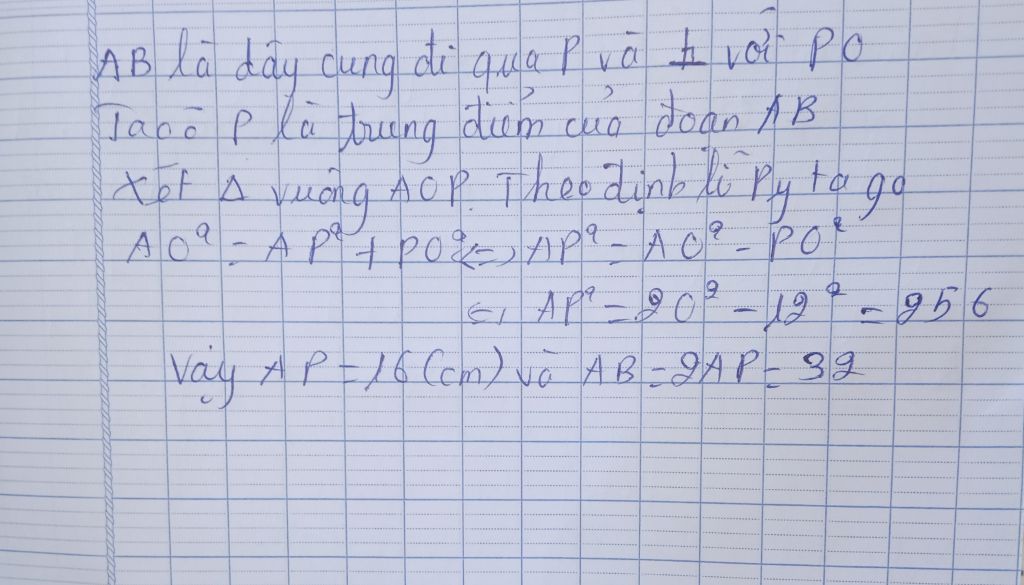 AB là dây cung đi qua P và ⊥ với PO
Ta có P là trung điểm của đoạn AB
Xét Δ vuông AOP. Theo định lí Pytago
AO² = AP² + PO² <=> AP² = AO² - PO²
<=> AP² = 20² - 12² = 256
Vậy AP = 16 (cm) và AB = 2AP = 32